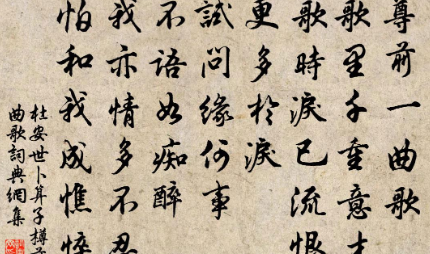 尊前一曲歌
歌里千重意才
歌時淚已流恨
更多於淚
試問緣何事
不語如痴醉
我亦情多不忍
怕和我成憔悴
杜安世卜算子樽前
曲歌詞典網集